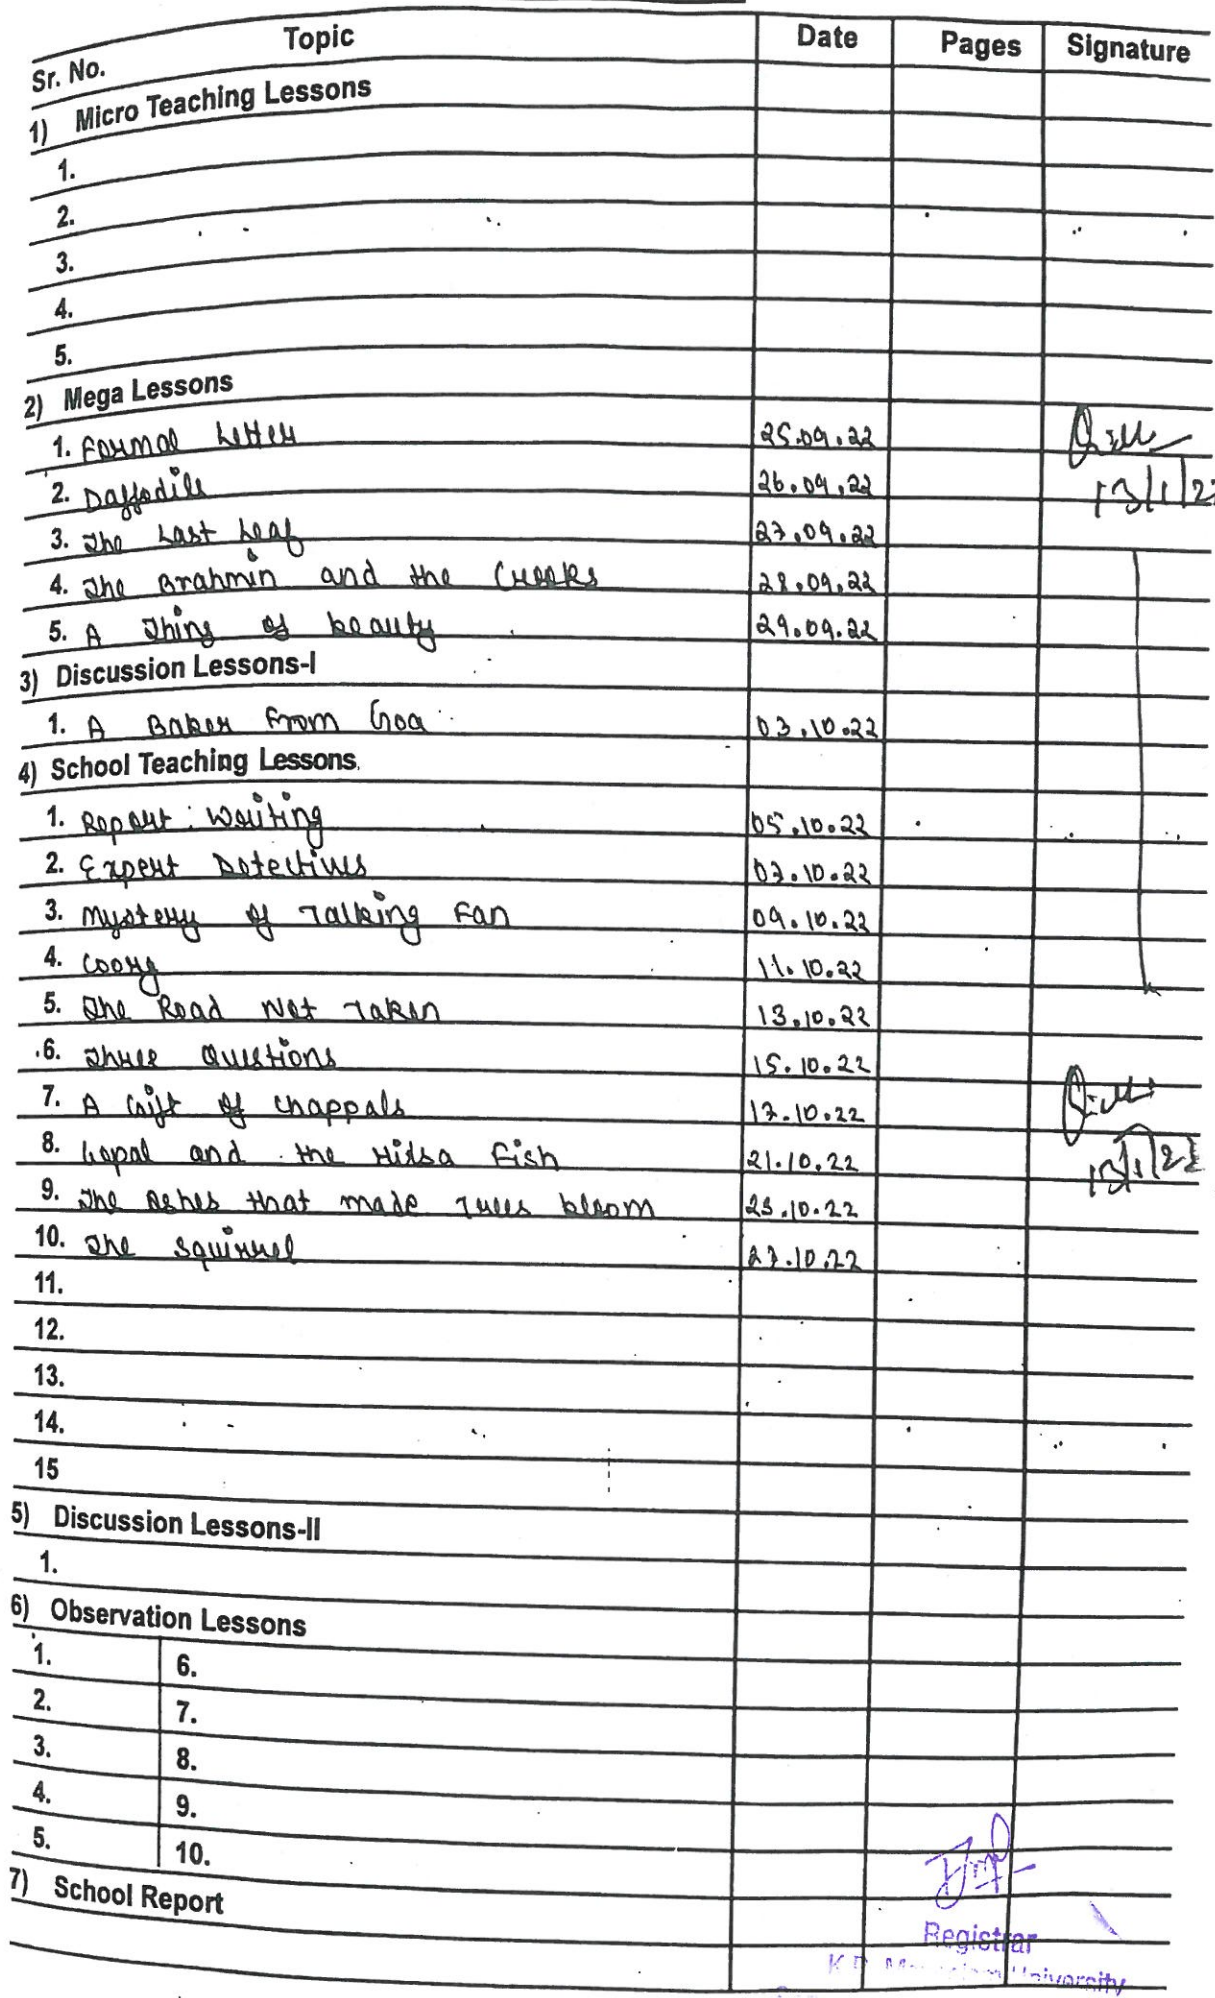 Sr. No. Topic Date Pages Signature
1) Micro Teaching Lessons
1.
2.
3.
4.
5.
2) Mega Lessons
1. Formal Letter 25.09.22
2. Daffodils 26.09.22 13/1/2
3. The Last Leaf 27.09.22
4. The Brahmin and the Crooks 28.09.22
5. A Thing of beauty 29.09.22
3) Discussion Lessons-I
1. A Baker From Goa 03.10.22
4) School Teaching Lessons
1. Report: Writing 05.10.22
2. Expert Detectives 07.10.22
3. Mystery of Talking Fan 09.10.22
4. Coorg 11.10.22
5. The Road Not Taken 13.10.22
6. Three Questions 15.10.22
7. A Gift of Chappals 17.10.22
8. Gopal and the Hilsa Fish 21.10.22
9. The Ashes that made Trees bloom 25.10.22
10. The Squirrel 27.10.22
11.
12.
13.
14.
15
5) Discussion Lessons-II
1.
6) Observation Lessons
1. 6.
2. 7.
3. 8.
4. 9.
5. 10.
7) School Report
Registrar
University